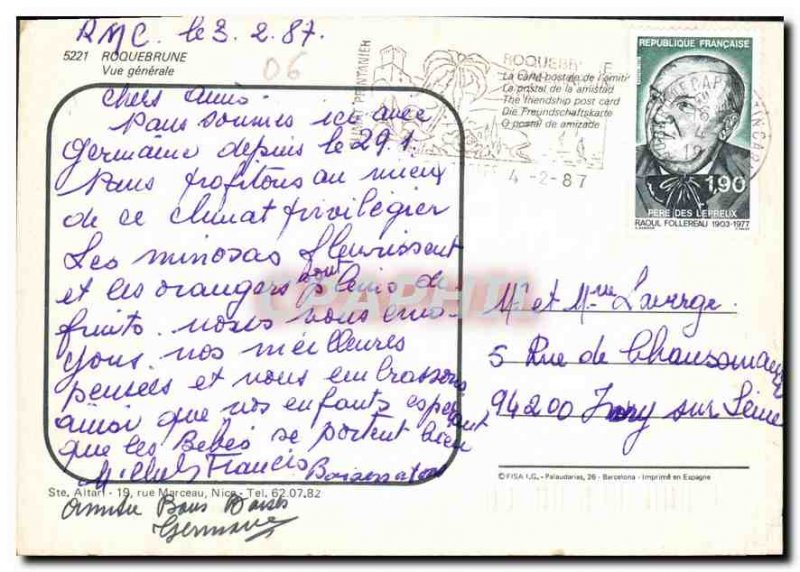 RMC. le 3. 2. 87.
5221 ROQUEBRUNE
Vue générale
06
chers amis.
Nous sommes ici avec
germaine depuis le 29.1.
Nous profitons au mieux
de ce climat privilégier
Les mimosas fleurissent
et les orangers sont pleins de
fruits. nous vous envo-
yons. nos meilleures
pensées et vous embrassons
ainsi que vos enfants espérant
que les Bébés se portent bien
Francis
Ste. Altari - 19, rue Marceau, Nice - Tel. 62.07.82
Amitié Bons Baisés
Germaine
ROQUEBRUNE
La carte postale de l'amitié
La postal de la amistad
The friendship post card
Die Freundschaftskarte
O postal de amizade
4-2-87
REPUBLIQUE FRANÇAISE
1,90
PERE DES LEPREUX
RAOUL FOLLEREAU 1903-1977
CPAPHIL
Mr et Mme Laverge.
5 Rue de
94200 Ivry sur Seine
© FISA I.G., - Palaudarias, 26 - Barcelona - Imprimé en Espagne